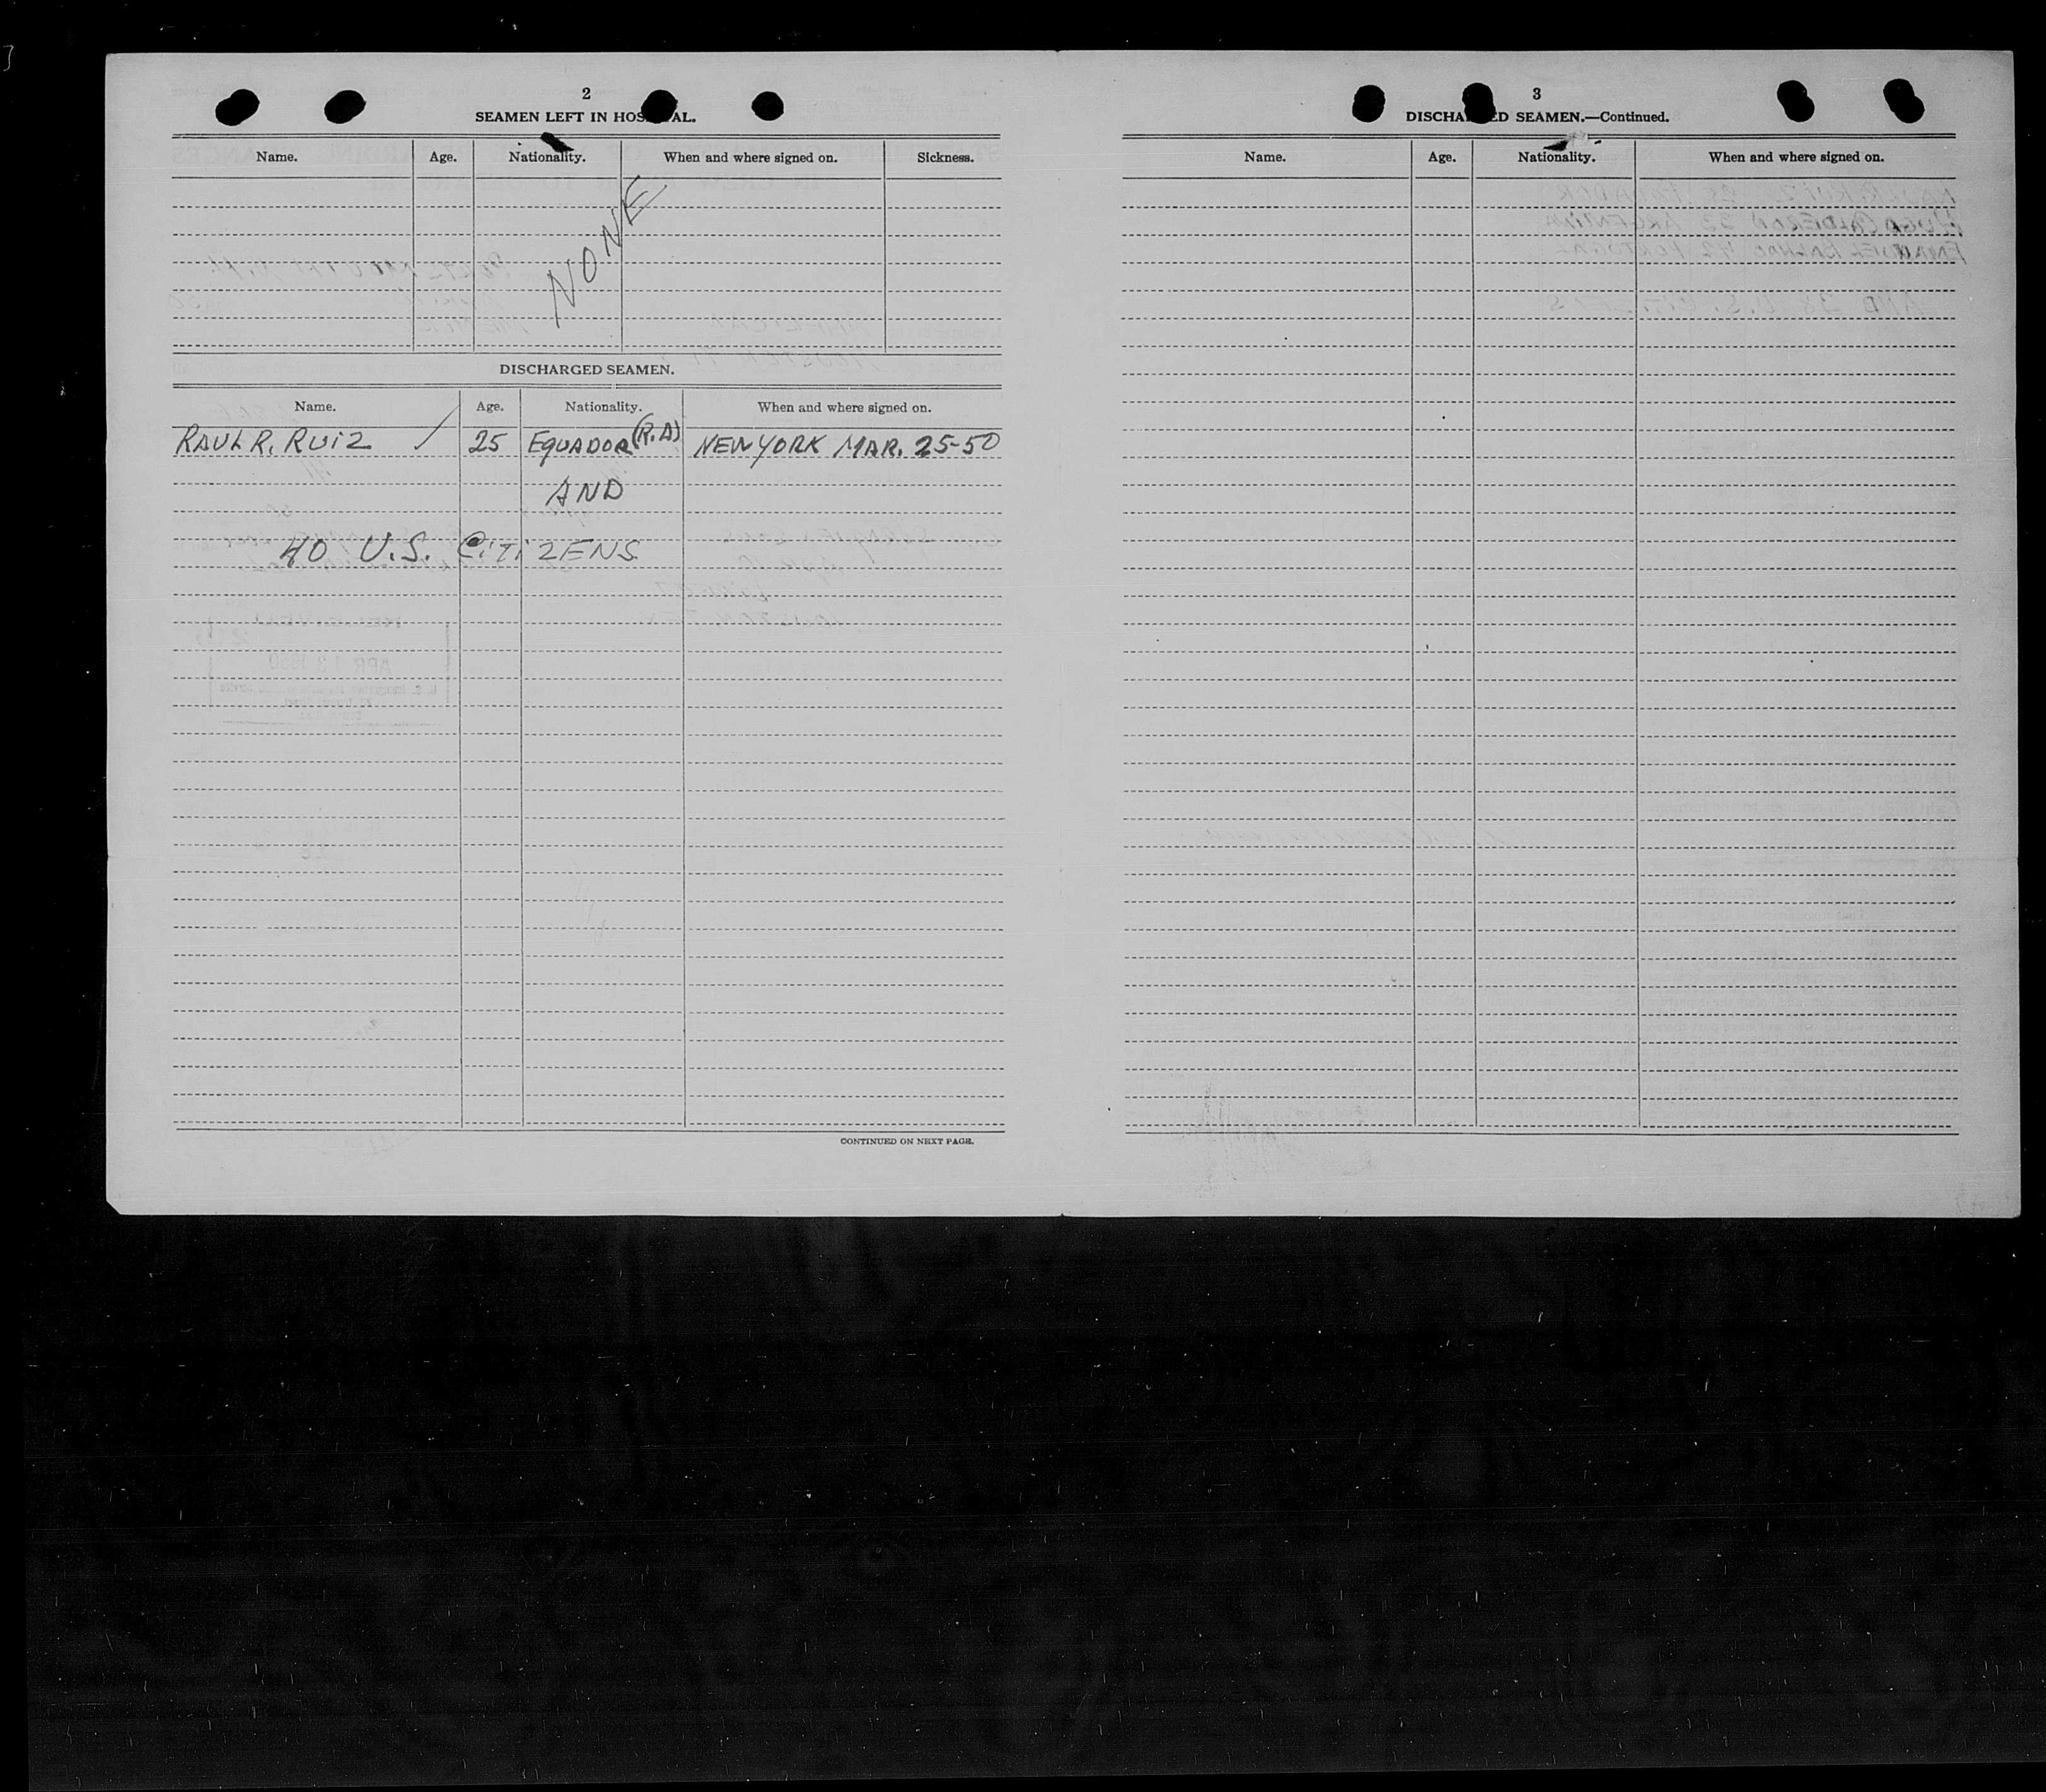 2
SEAMEN LEFT IN HOS AL.
Name. Age. Nationality. When and where signed on. Sickness.
NONE
DISCHARGED SEAMEN.
Name. Age. Nationality. When and where signed on.
RAUL R. RUIZ / 25 EQUADOR (R.A) NEW YORK MAR. 25-50
AND
40 U.S. CITIZENS
CONTINUED ON NEXT PAGE.
3
DISCHA ED SEAMEN.—Continued.
Name. Age. Nationality. When and where signed on.